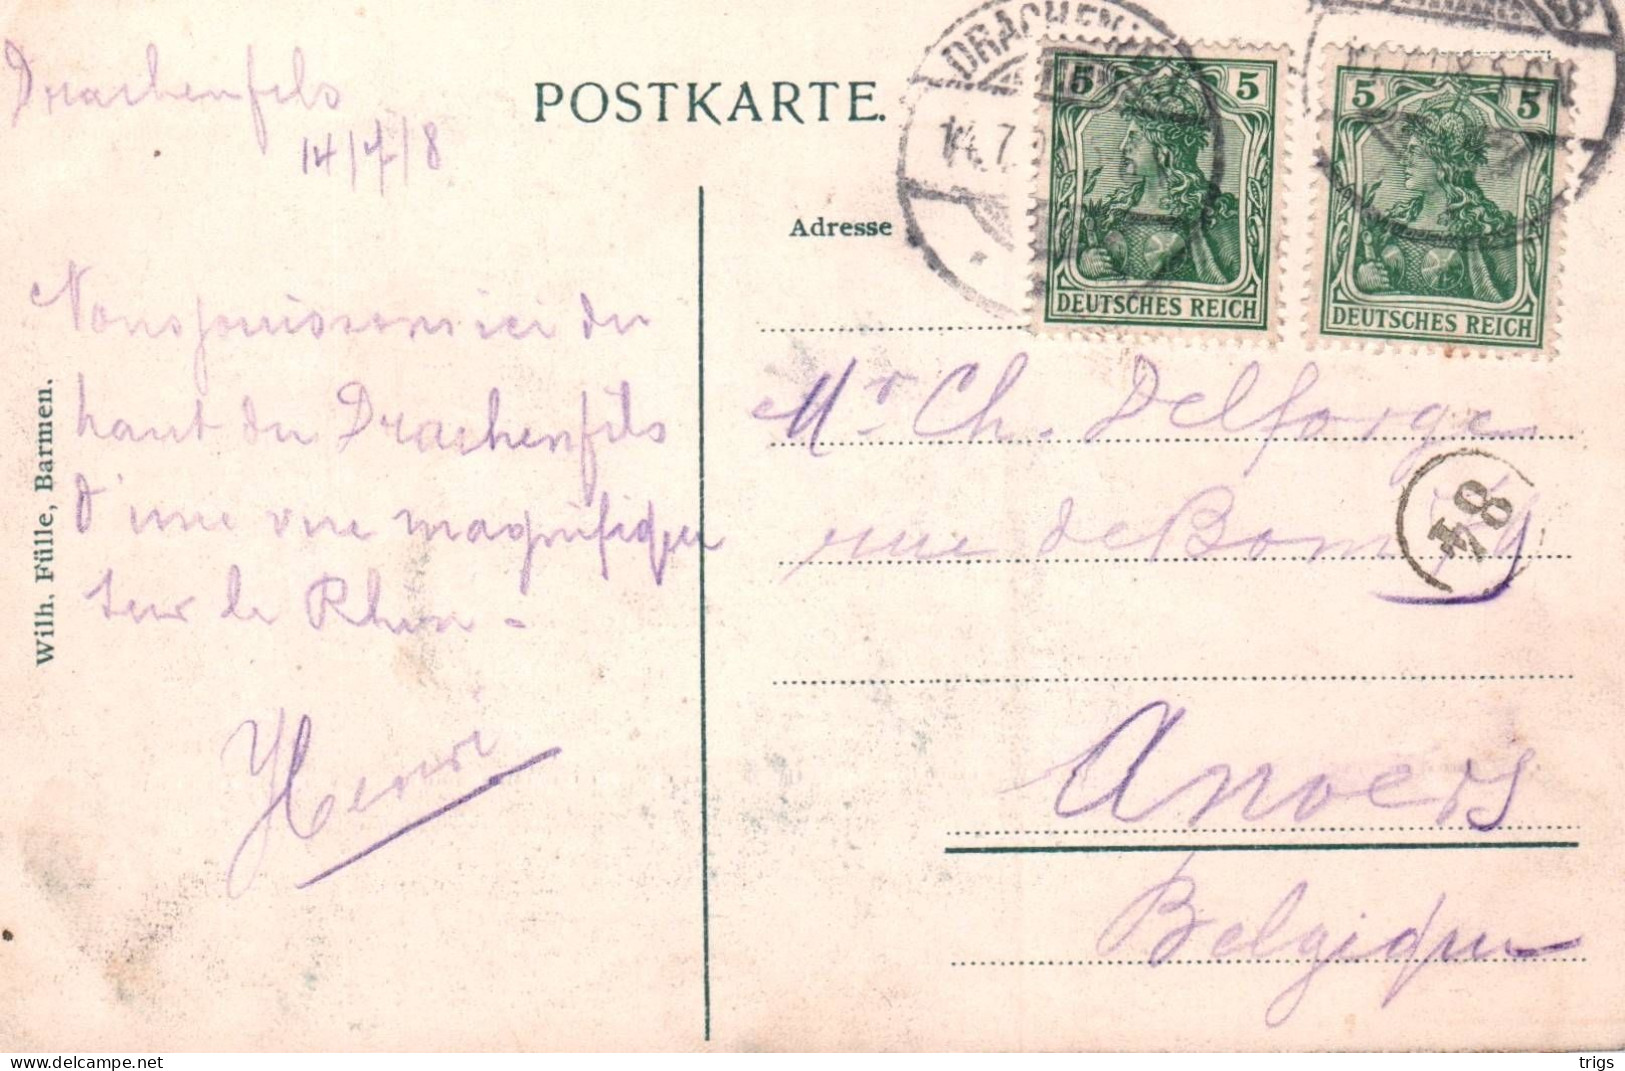 Drachenfels
14/7/8
POSTKARTE.
Adresse
DRACHEN
14.7.
5 5
DEUTSCHES REICH
5 5
DEUTSCHES REICH
Nous jouissons ici du
haut du Drachenfils
d'une vue magnifique
sur le Rhin -
Henri
Wilh. Fülle, Barmen.
Mr Ch. Delforge
rue de Bom
84
Anvers
Belgique
trigs